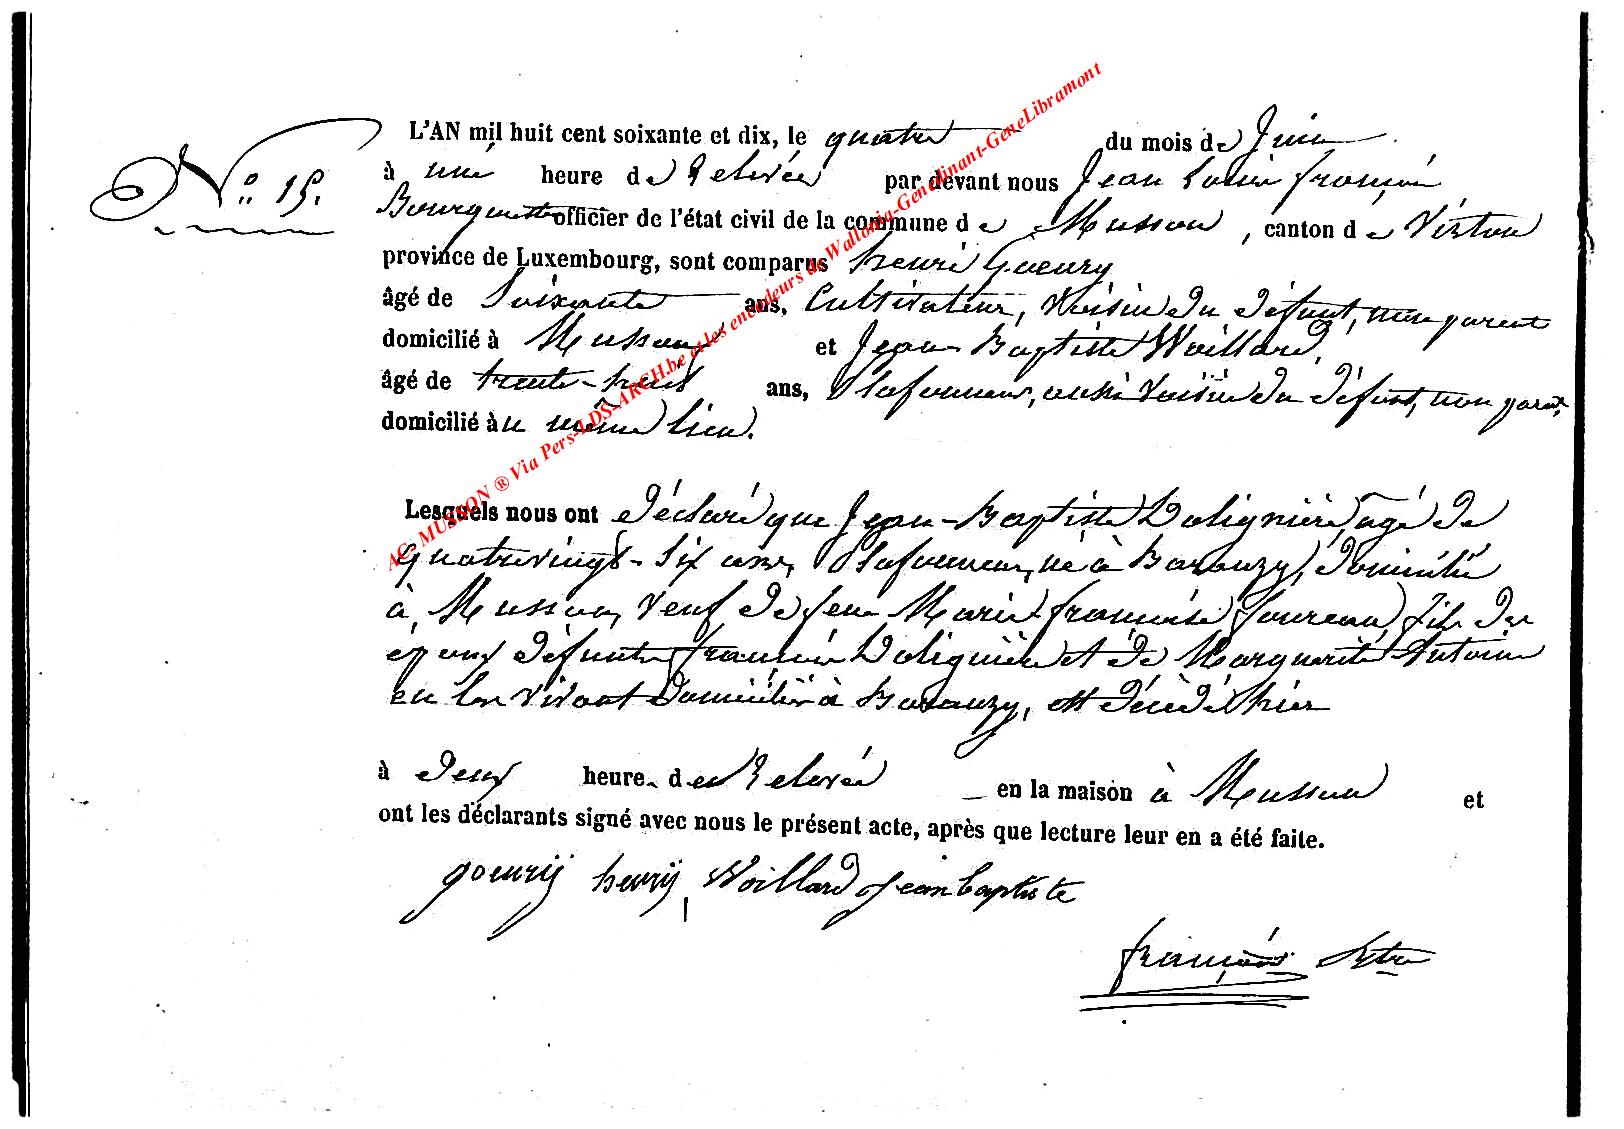 L'AN mil huit cent soixante et dix, le quatre du mois de Juin
N° 15.
à une heure de relevée par devant nous Jean Louis François
officier de l'état civil de la commune de Musson, canton de Virton
province de Luxembourg, sont comparus henri Goeury
âgé de Soixante ans, Cultivateur, Voisin du défunt, non parent
domicilié à Musson et Jean-Baptiste Woillard,
âgé de trente-huit ans, Plafonneur, aussi voisin du défunt, non parent,
domicilié au même lieu.
Lesquels nous ont déclaré que Jean-Baptiste Dolignière, agé de
quatrevingt-six ans, Plafonneur, né à Baranzy, domicilié
à Musson, veuf de feue Marie françoise fils des
époux défunts françois Dolignière et de Marguerite Antoine
en leur vivant domiciliés à Baranzy, est décédé hier
à deux heures de Relevée en la maison à Musson et
ont les déclarants signé avec nous le présent acte, après que lecture leur en a été faite.
goeurij henrij Woillard jean baptiste
françois
AC. MUSSON ® Via Pers-LDS-ARCH.be et les encodeurs de Wallonia-Genedinant-GeneLibramont